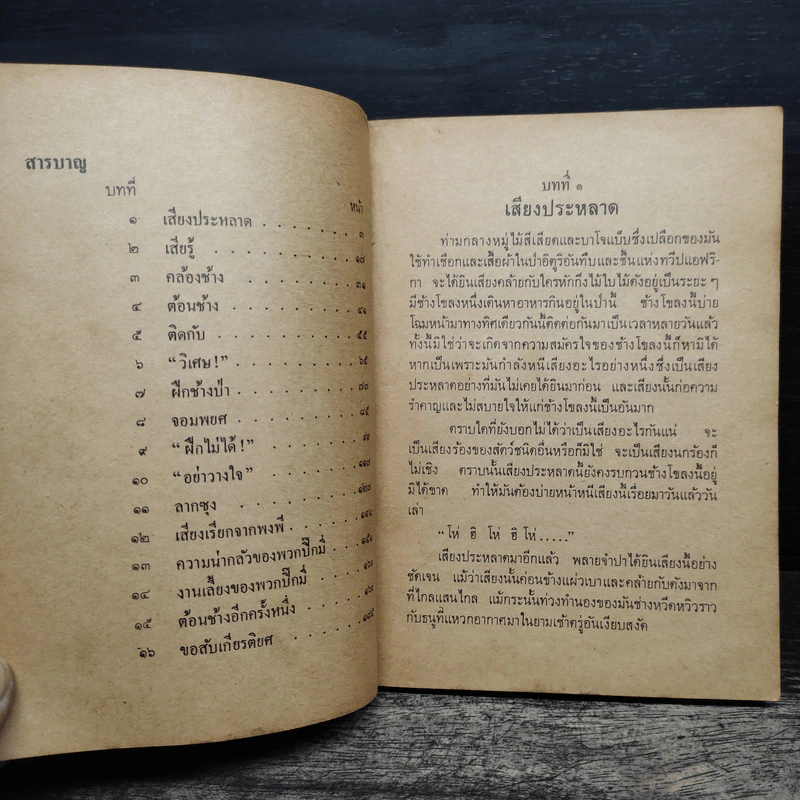 สารบาญ
บทที่ หน้า
๑ เสียงประหลาด . . . . . . . . ๓
๒ เสียรู้ . . . . . . . . ๑๗
๓ คล้องช้าง . . . . . . . . ๓๑
๔ ต้อนช้าง . . . . . . . . ๔๑
๕ ติดกับ . . . . . . . . ๕๕
๖ “วิเศษ!” . . . . . . . . ๖๕
๗ ฝึกช้างป่า . . . . . . . . ๗๓
๘ จอมพยศ . . . . . . . . ๘๕
๙ “ฝึกไม่ได้!” . . . . . . . . ๙๗
๑๐ “อย่าวางใจ” . . . . . . . .
๑๑ ลากซุง . . . . . . . .
๑๒ เสียงเรียกจากพงพี . . . . . . . .
๑๓ ความน่ากลัวของพวกปิ๊กมี่ . . . . .
๑๔ งานเลี้ยงของพวกปิ๊กมี่ . . . . . .
๑๕ ต้อนช้างอีกครั้งหนึ่ง . . . . . . .
๑๖ ขอสับเกียรติยศ . . . . . . . .
บทที่ ๑
เสียงประหลาด
ท่ามกลางหมู่ไม้สีเสียดและบาโจแบ็บซึ่งเปลือกของมัน
ใช้ทำเชือกและเสื้อผ้าในป่าอิตูริอันทึบและชื้นแห่งทวีปแอฟริ-
กา จะได้ยินเสียงคล้ายกับใครหักกิ่งไม้ใบไม้ดังอยู่เป็นระยะ ๆ
มีช้างโขลงหนึ่งเดินหาอาหารกินอยู่ในป่านี้ ช้างโขลงนี้บ่าย
โฉมหน้ามาทางทิศเดียวกันนี้ติดต่อกันมาเป็นเวลาหลายวันแล้ว
ทั้งนี้มิใช่ว่าจะเกิดจากความสมัครใจของช้างโขลงนี้ก็หามิได้
หากเป็นเพราะมันกำลังหนีเสียงอะไรอย่างหนึ่งซึ่งเป็นเสียง
ประหลาดอย่างที่มันไม่เคยได้ยินมาก่อน และเสียงนั้นก่อความ
รำคาญและไม่สบายใจให้แก่ช้างโขลงนี้เป็นอันมาก
ตราบใดที่ยังบอกไม่ได้ว่าเป็นเสียงอะไรกันแน่ จะ
เป็นเสียงร้องของสัตว์ชนิดอื่นหรือก็มิใช่ จะเป็นเสียงนกร้องก็
ไม่เชิง ตราบนั้นเสียงประหลาดนี้ยังคงรบกวนช้างโขลงนี้อยู่
มิได้ขาด ทำให้มันต้องบ่ายหน้าหนีเสียงนี้เรื่อยมาวันแล้ววัน
เล่า
“ โห่ ฮิ โห่ ฮิ โห่ . . . . .”
เสียงประหลาดมาอีกแล้ว พลายจำปาได้ยินเสียงนี้อย่าง
ชัดเจน แม้ว่าเสียงนั้นค่อนข้างแผ่วเบาและคล้ายกับดังมาจาก
ที่ไกลแสนไกล แม้กระนั้นท่วงทำนองของมันช่างหวีดหวิวราว
กับธนูที่แหวกอากาศมาในยามเช้าตรู่อันเงียบสงัด